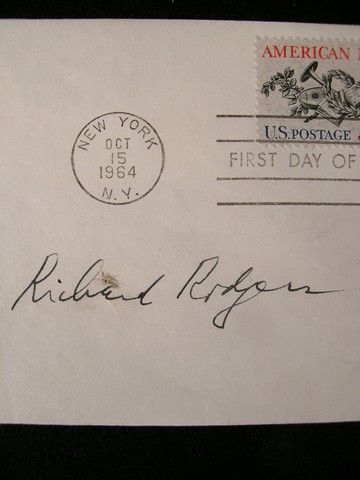 AMERICAN
U.S. POSTAGE
NEW YORK
OCT
15
1964
N.Y.
FIRST DAY OF
Richard Rodgers